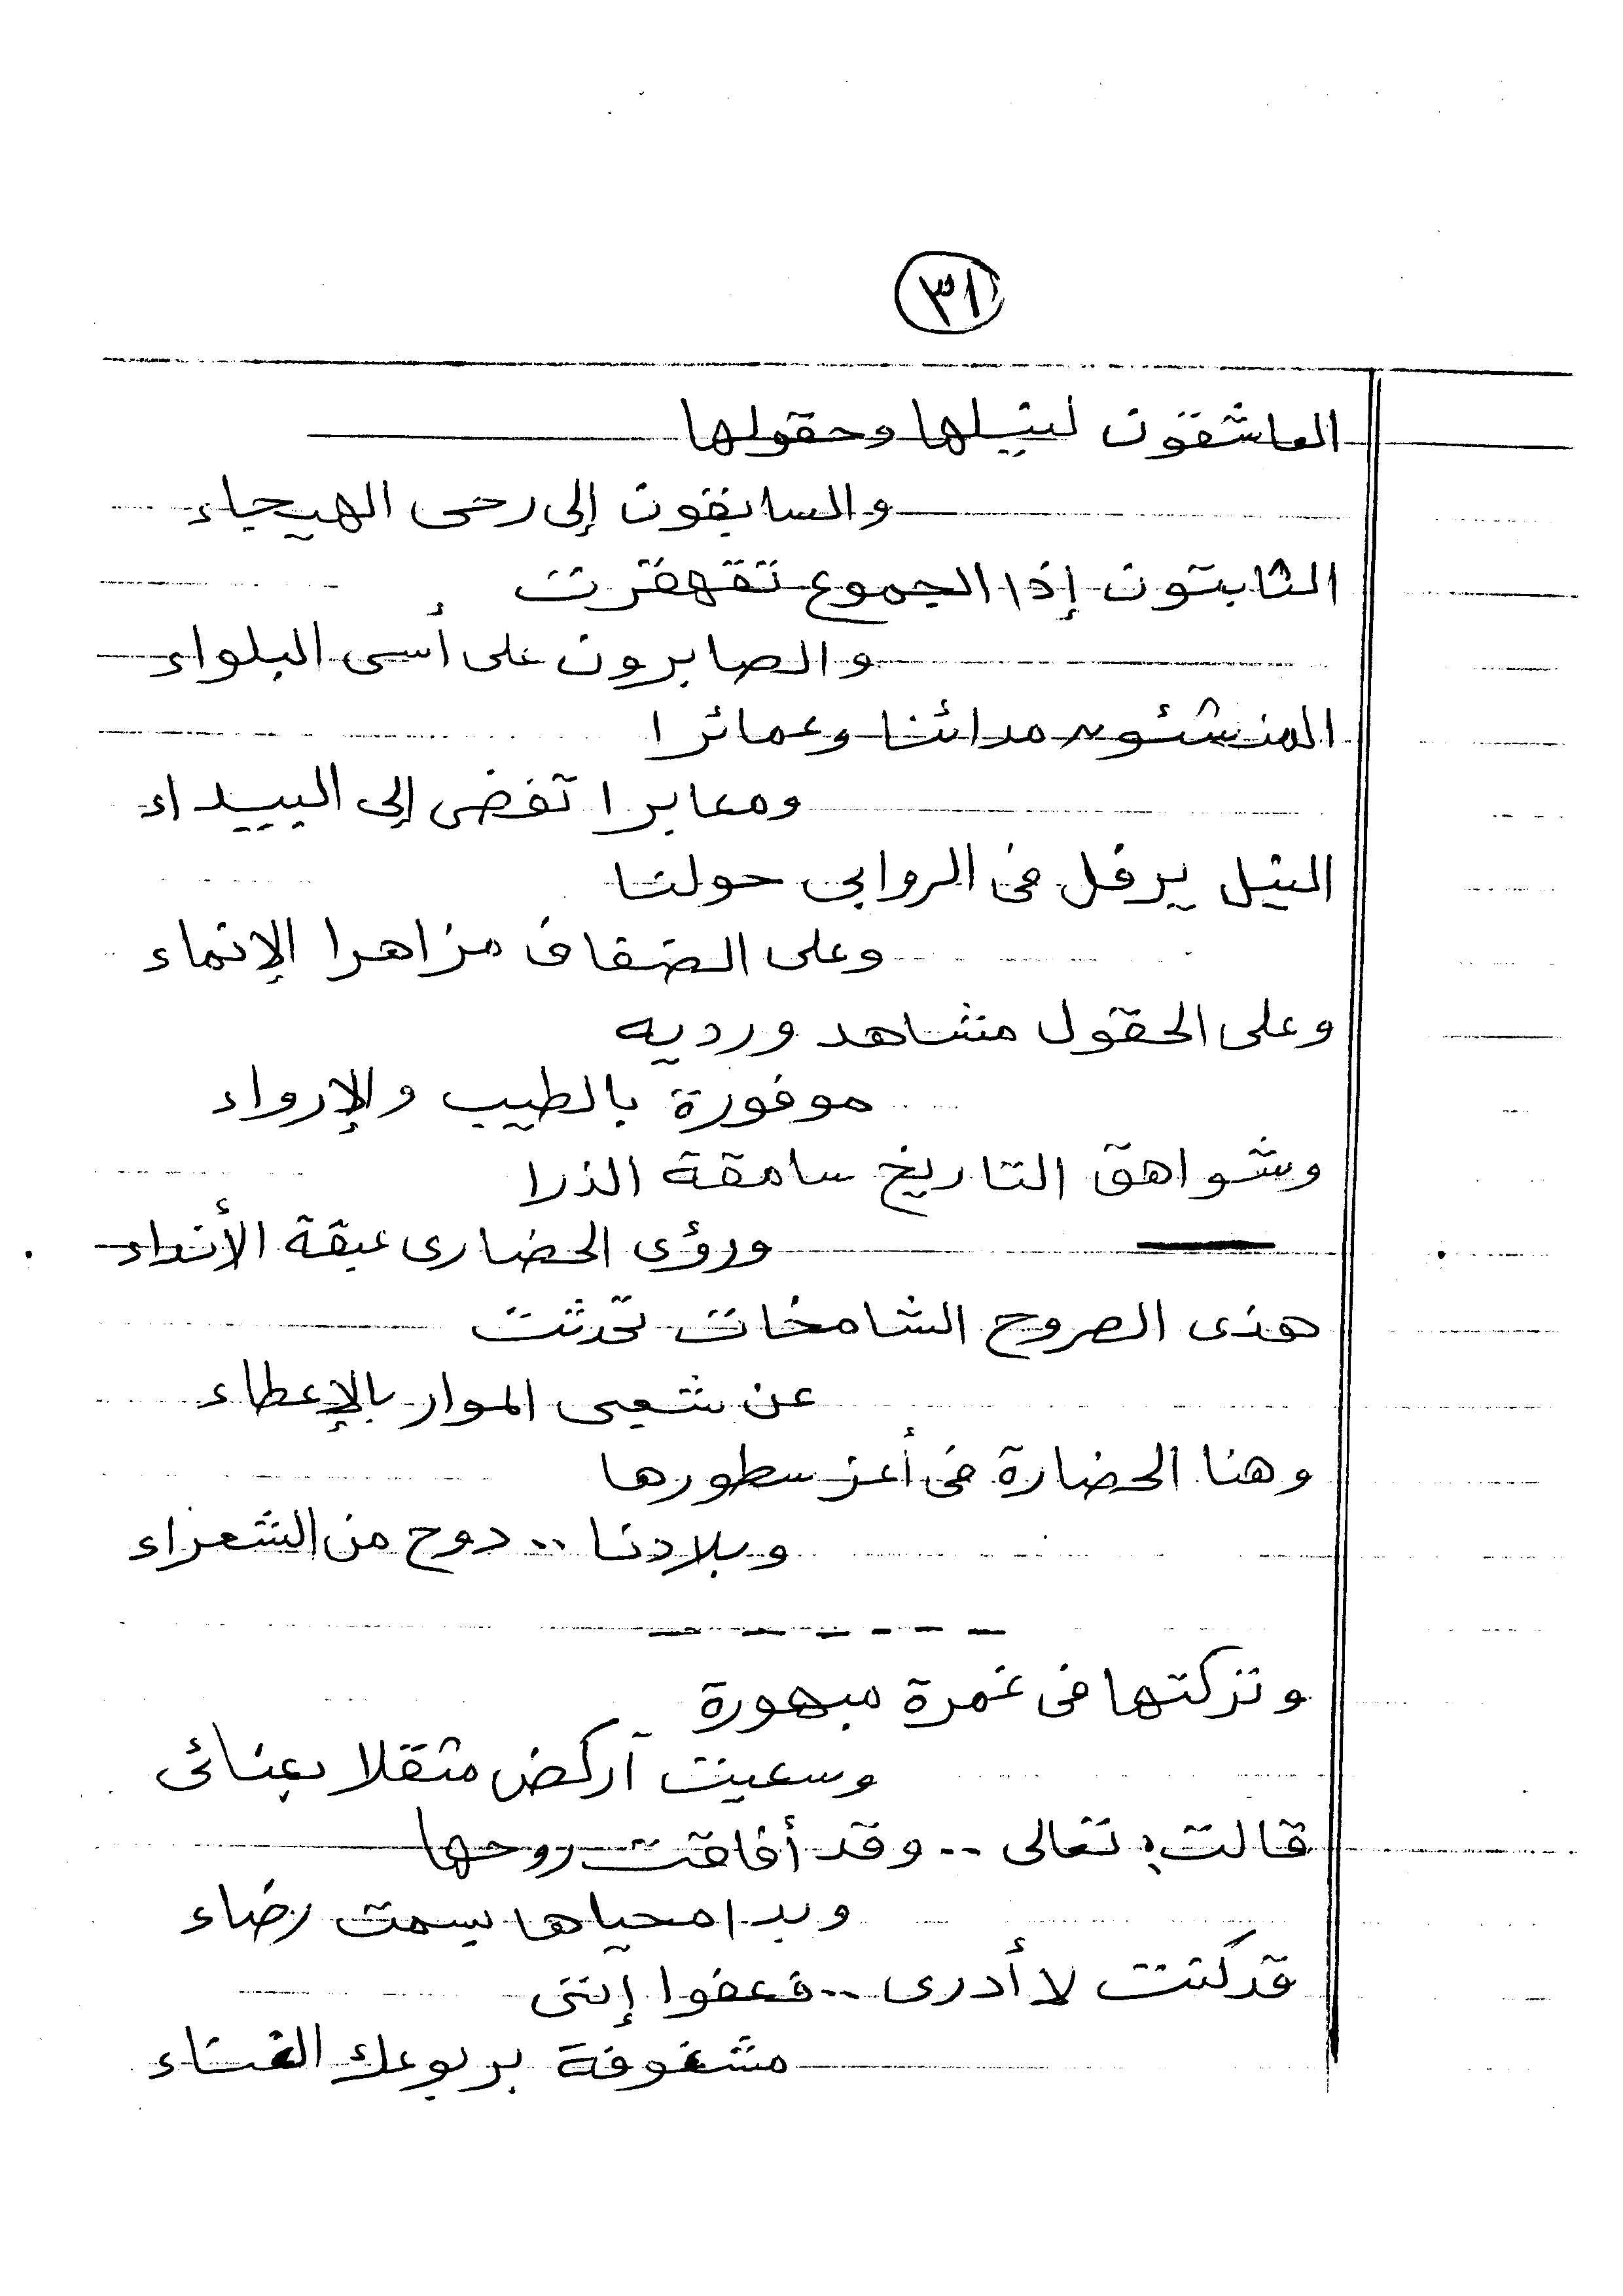 ٣١
العاشقون لنيلها وحقولها
والسابقون إلى رحى الهيجاء
الثابتون إذا الجموع تقهقرت
والصابرون على أسى البلواء
المنشئون مدائنا وعمائرا
ومعابرا تفضى إلى البيداء
النيل يرفل فى الروابى حولنا
وعلى الضفاف مزاهرا الإنماء
وعلى الحقول مشاهد ورديه
موفورة بالطيب والإرواء
وشواهق التاريخ سامقة الذرا
ورؤى الحضارى عبقة الأنداء
هذى الصروح الشامخات تحدثت
عن شعبى الموار بالإعطاء
وهنا الحضارة فى أعز سطورها
وبلادنا .. دوح من الشعراء
وتركتها فى غمرة مبهورة
وسعيت أركض مثقلا بعنائى
قالت: تعالى .. وقد أفاقت روحها
وبدا محياها بسمت رضاء
قد كنت لا أدرى .. فعفوا إننى
مشغوفة بربوعك الغناء